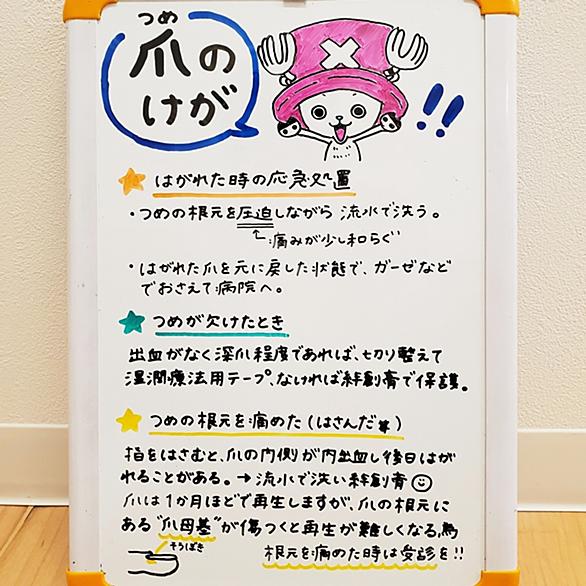 つめ
爪の
けが
!!
はがれた時の応急処置
・つめの根元を圧迫しながら 流水で洗う。
痛みが少し和らぐ
・はがれた爪を元に戻した状態で、ガーゼなど
でおさえて病院へ。
つめが欠けたとき
出血がなく深爪程度であれば、切り整えて
湿潤療法用テープ、なければ絆創膏で保護。
つめの根元を痛めた(はさんだ)
指をはさむと、爪の内側が内出血し後日はが
れることがある。→流水で洗い絆創膏
爪は1か月ほどで再生しますが、爪の根元に
ある"爪母基"が傷つくと再生が難しくなる為
そうぼき
根元を痛めた時は受診を!!